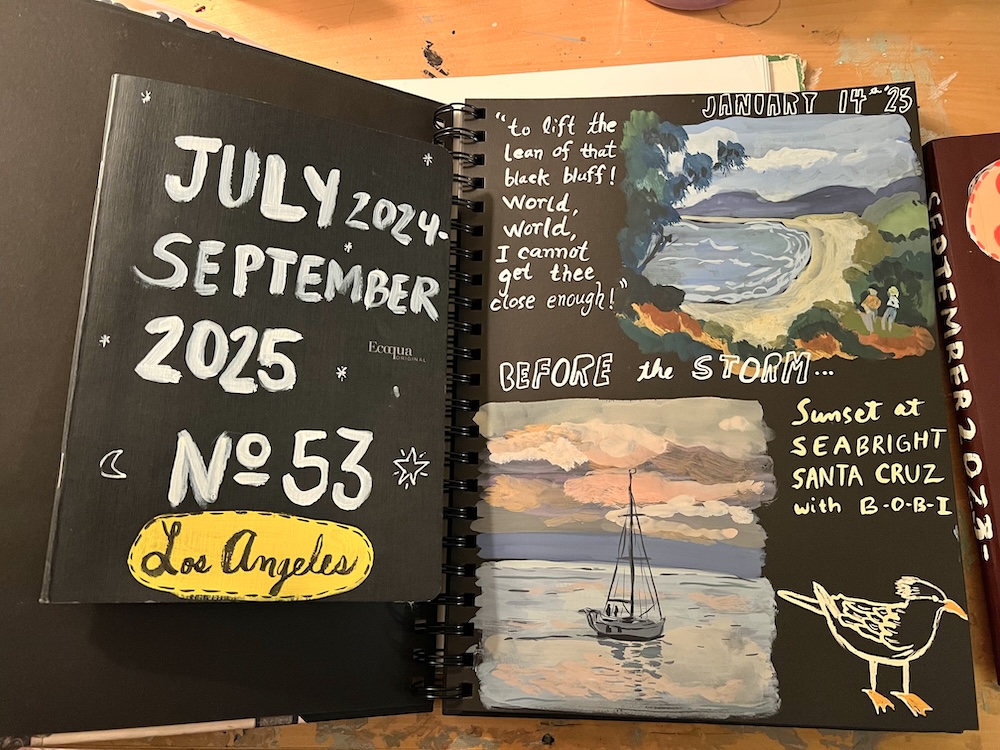 JULY 2024-
SEPTEMBER
2025
Ecoqua
ORIGINAL
Nº 53
Los Angeles
JANUARY 14th '23
"to lift the
lean of that
black bluff!
World,
World,
I cannot
get thee
close enough!"
BEFORE the STORM...
Sunset at
SEABRIGHT
SANTA CRUZ
with B-O-B-I
SEPTEMBER 2023-